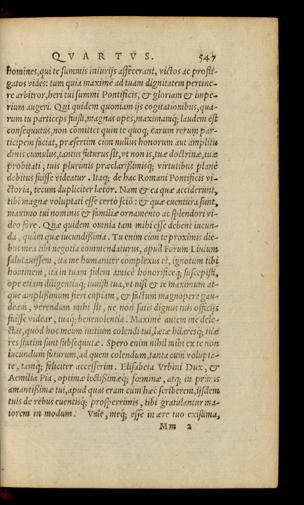 QVARTVS. 547
homines, qui te summis iniurijs affecerant, victos ac profli-
gatos vides: tum quia maximè ad tuam dignitatem pertine-
re arbitror, heri tui summi Pontificis, & gloriam & impe-
rium augeri. Qui quidem quoniam ijs cogitationibus, qua-
rum tu particeps fuisti, magnas opes, maximamq; laudem est
consequutus, non cōmittet quin te quoq; earum rerum par-
ticipem faciat, præsertim cùm nullus honorum aut amplitu
dinis cumulus, tantus futurus sit, vt non is, tuæ doctrinæ, tuæ
probitati, tuis plurimis præclarissimisq; virtutibus planè
debitus fuisse videatur. Itaq; de hac Romani Pontificis vi-
ctoria, tecum dupliciter lætor. Nam & ea quæ acciderunt,
tibi magnæ voluptati esse certò sciō: & quæ euentura sunt,
maximo tui nominis & familiæ ornamento ac splendori vi-
deo fore. Quæ quidem omnia tam mihi esse debent iucun-
da, quàm quæ iucundissima. Tu enim cùm te proximis die-
bus mea tibi negotia commendaturus, apud Forum Liuium
salutauissem, ita me humaniter complexus es, ignotum tibi
hominem, ita in tuam fidem amicè honorificeq; suscepisti,
ope etiam diligentiaq; iuuisti tua, vt nisi & te maximum at-
que amplissimum fieri cupiam, & factum magnopere gau-
deam, verendum mihi sit, ne non satis dignus tuis officijs
fuisse videar, tuaq; beneuolentia. Maximè autem me dele-
ctat, quòd hoc meum initium colendi tui, lætæ hilaresq; tuæ
res statim sunt subsequutæ. Spero enim nihil mihi ex te non
iucundum futurum, ad quem colendum, tanta cum volupta-
te, tamq; feliciter accesserim. Elisabeta Vrbini Dux, &
Aemilia Pia, optimæ lectissimæq; fœminæ, atq; in primis
amantissimæ tui, apud quas eram cùm hæc scriberem, ijsdem
tuis de rebus euentisq; prosperrimis, tibi gratulantur ma-
iorem in modum. Vale, meq; esse in ære tuo existima,
Mm 2